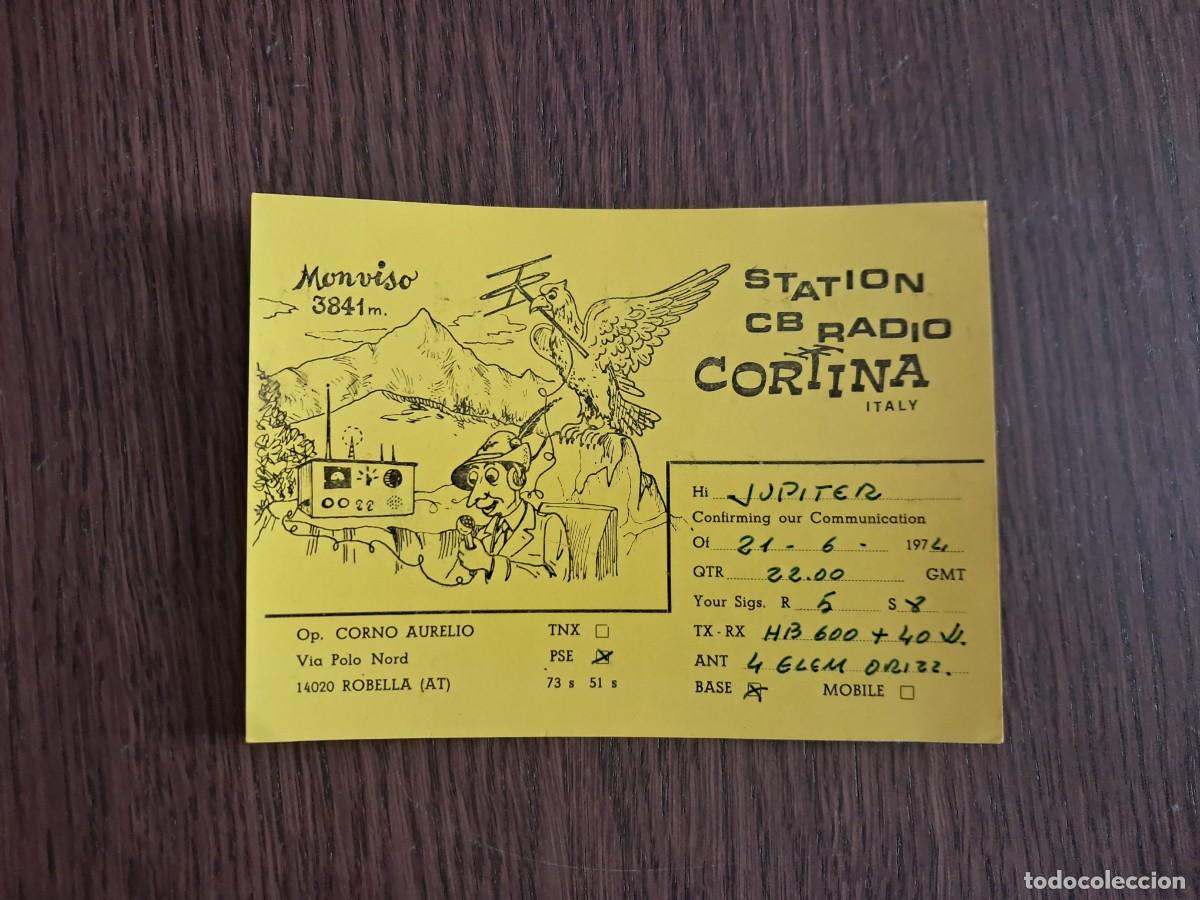 Monviso
3841 m.
STATION
CB RADIO
CORTINA
ITALY
Hi JUPITER
Confirming our Communication
Of 21 - 6 - 1974
QTR 22.00 GMT
Your Sigs. R 5 S 8
TX - RX HB 600 + 40 W.
ANT 4 ELEM ORIZZ.
BASE MOBILE
Op. CORNO AURELIO TNX
Via Polo Nord PSE
14020 ROBELLA (AT) 73 s 51 s
todocoleccion